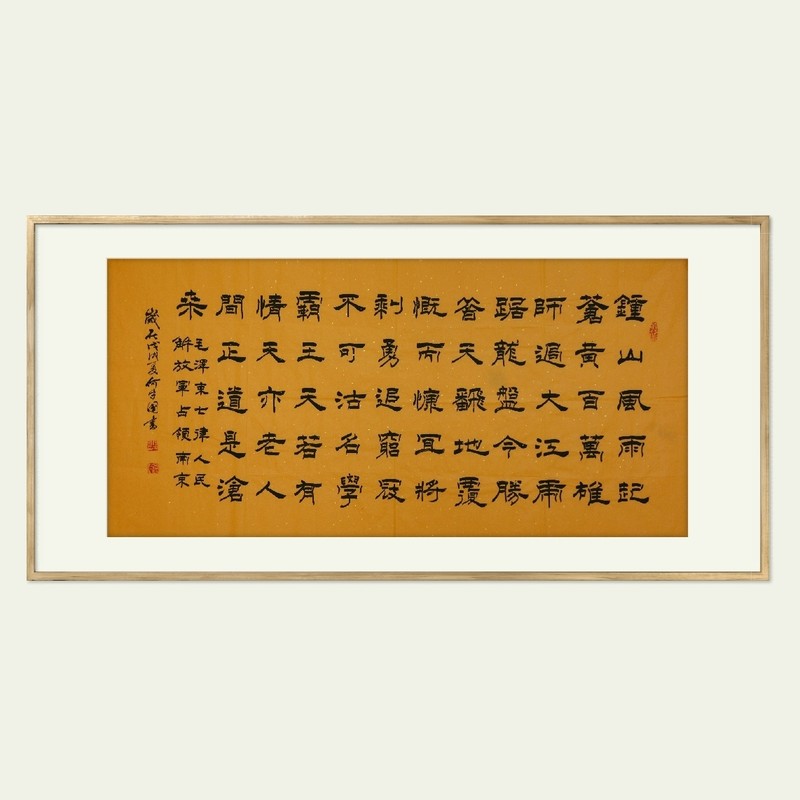 鍾山風雨起
蒼黃百萬雄
師過大江虎
踞龍盤今勝
昔天飜地覆
慨而慷宜將
剩勇追窮寇
不可沽名學
霸王天若有
情天亦老人
間正道是滄
桑
毛澤東七律人民
解放軍占領南京
歲在戊戌夏何國書